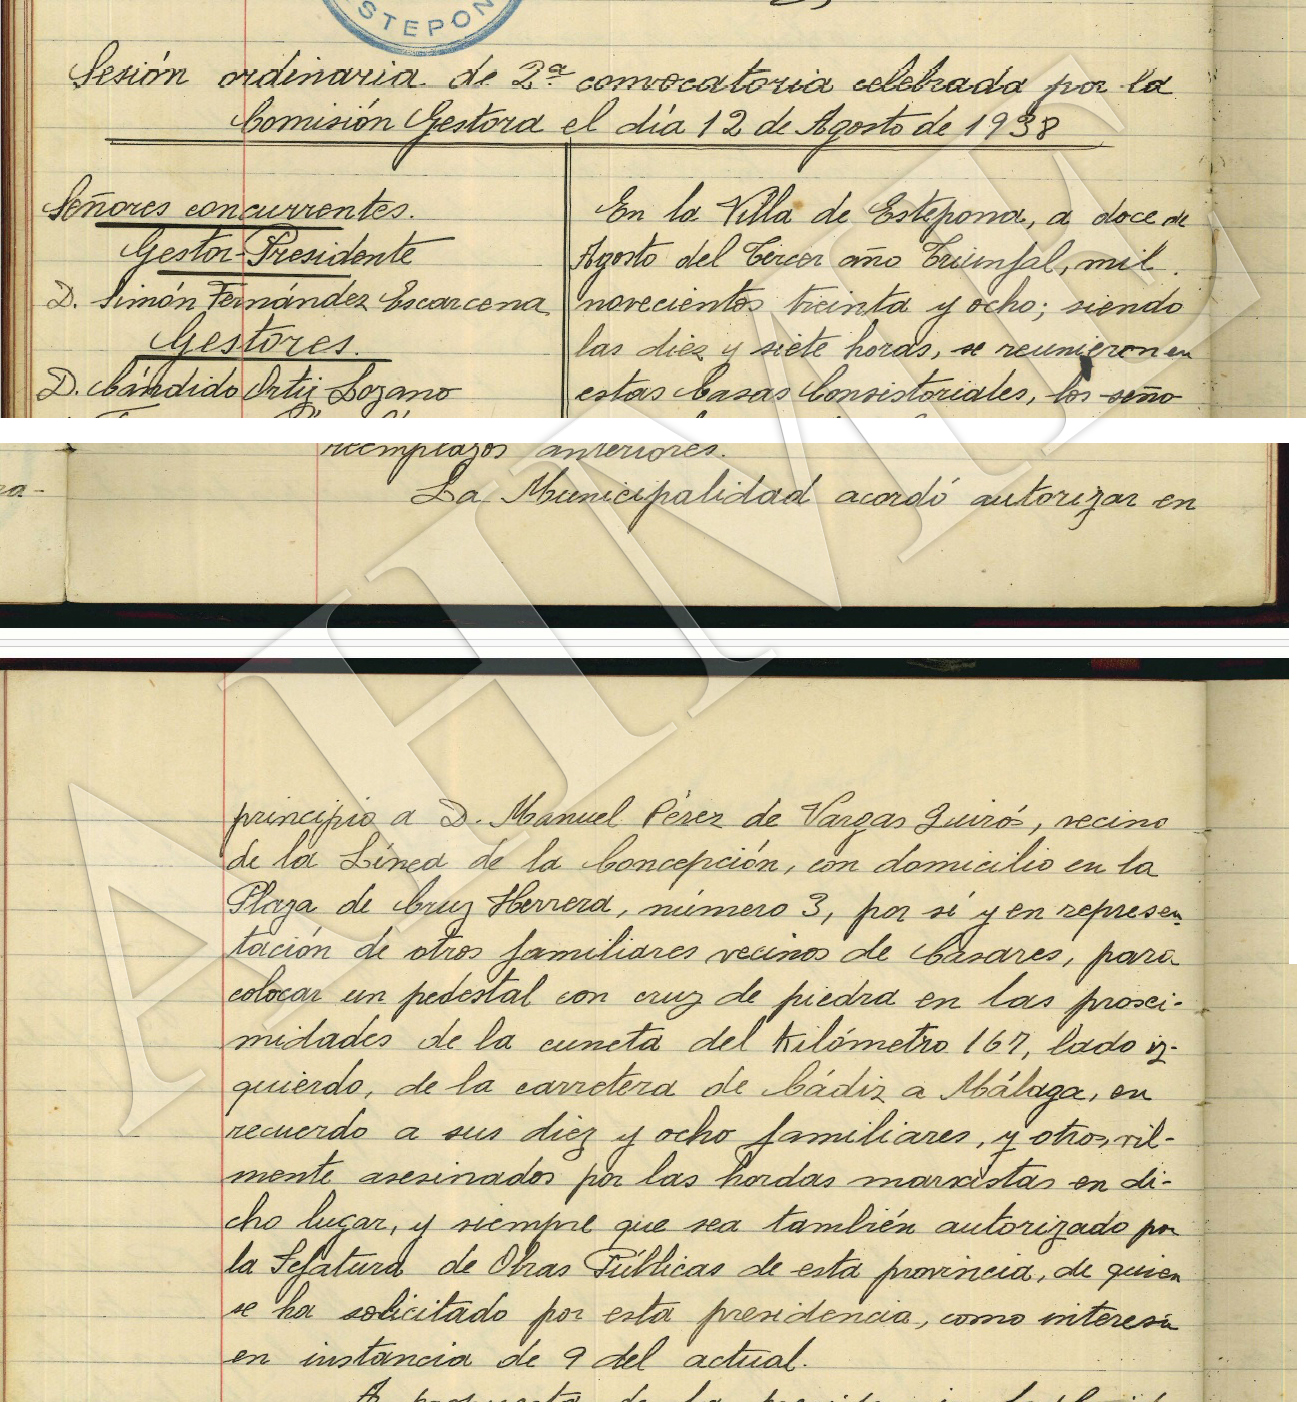 ESTEPON
Sesión ordinaria de 2ª convocatoria celebrada por la
Comisión Gestora el día 12 de Agosto de 1938
Señores concurrentes.
Gestor-Presidente
D. Simón Fernández Escarcena
Gestores.
D. Cándido Ortiz Lozano
En la Villa de Estepona, a doce de
Agosto del Tercer año Triunfal, mil
novecientos treinta y ocho; siendo
las diez y siete horas, se reunieron en
estas Casas Consistoriales, los seño
reemplazos anteriores.
La Municipalidad acordó autorizar en
principio a D. Manuel Pérez de Vargas Quirós, vecino
de la Línea de la Concepción, con domicilio en la
Plaza de Cruz Herrera, número 3, por sí y en represen
tación de otros familiares vecinos de Casares, para
colocar un pedestal con cruz de piedra en las proxi-
midades de la cuneta del kilómetro 167, lado iz-
quierdo, de la carretera de Cádiz a Málaga, en
recuerdo a sus diez y ocho familiares, y otros, vil-
mente asesinados por las hordas marxistas en di-
cho lugar, y siempre que sea también autorizado por
la Jefatura de Obras Públicas de esta provincia, de quien
se ha solicitado por esta presidencia, como interesa
en instancia de 9 del actual.
A propuesta de la
AHME